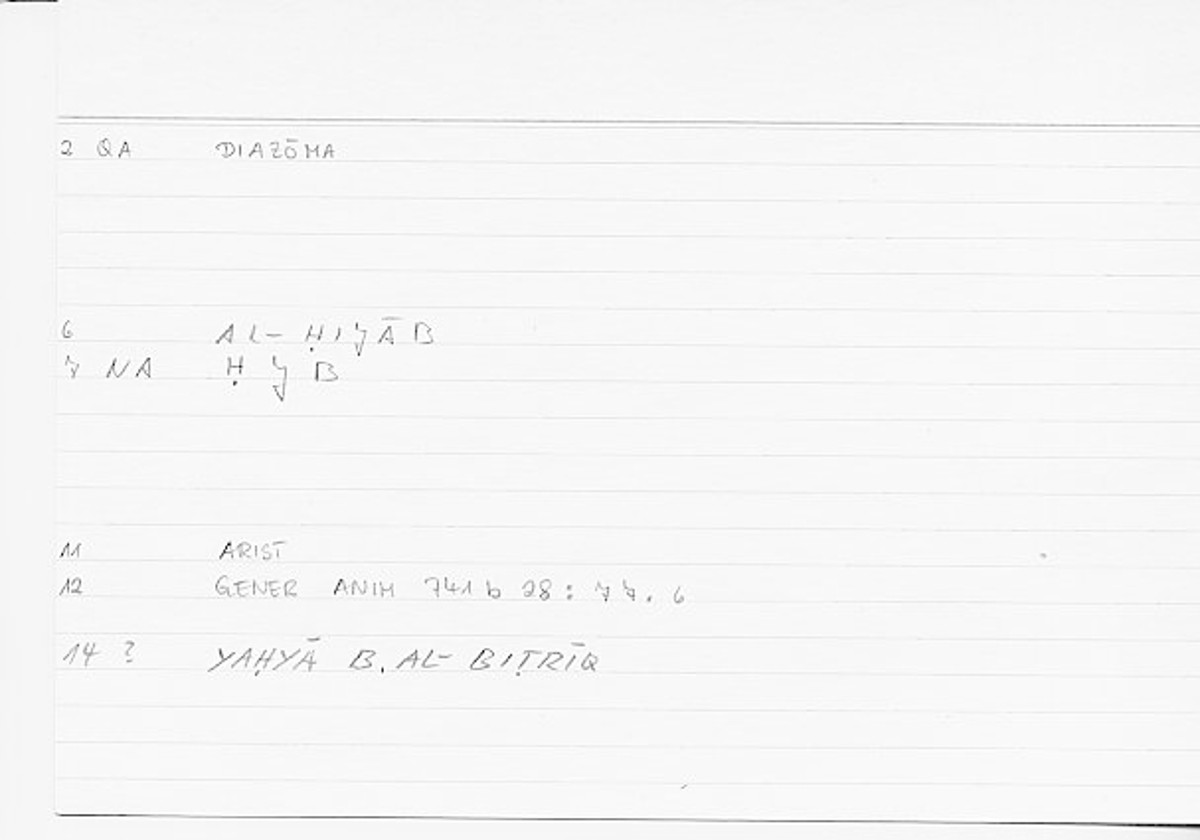 2 QA DIAZŌMA
6 AL-ḤIJĀB
7 NA ḤJB
11 ARIST
12 GENER ANIM 741 b 28 : 77.6
14 ? YAḤYĀ B. AL-BIṬRĪQ